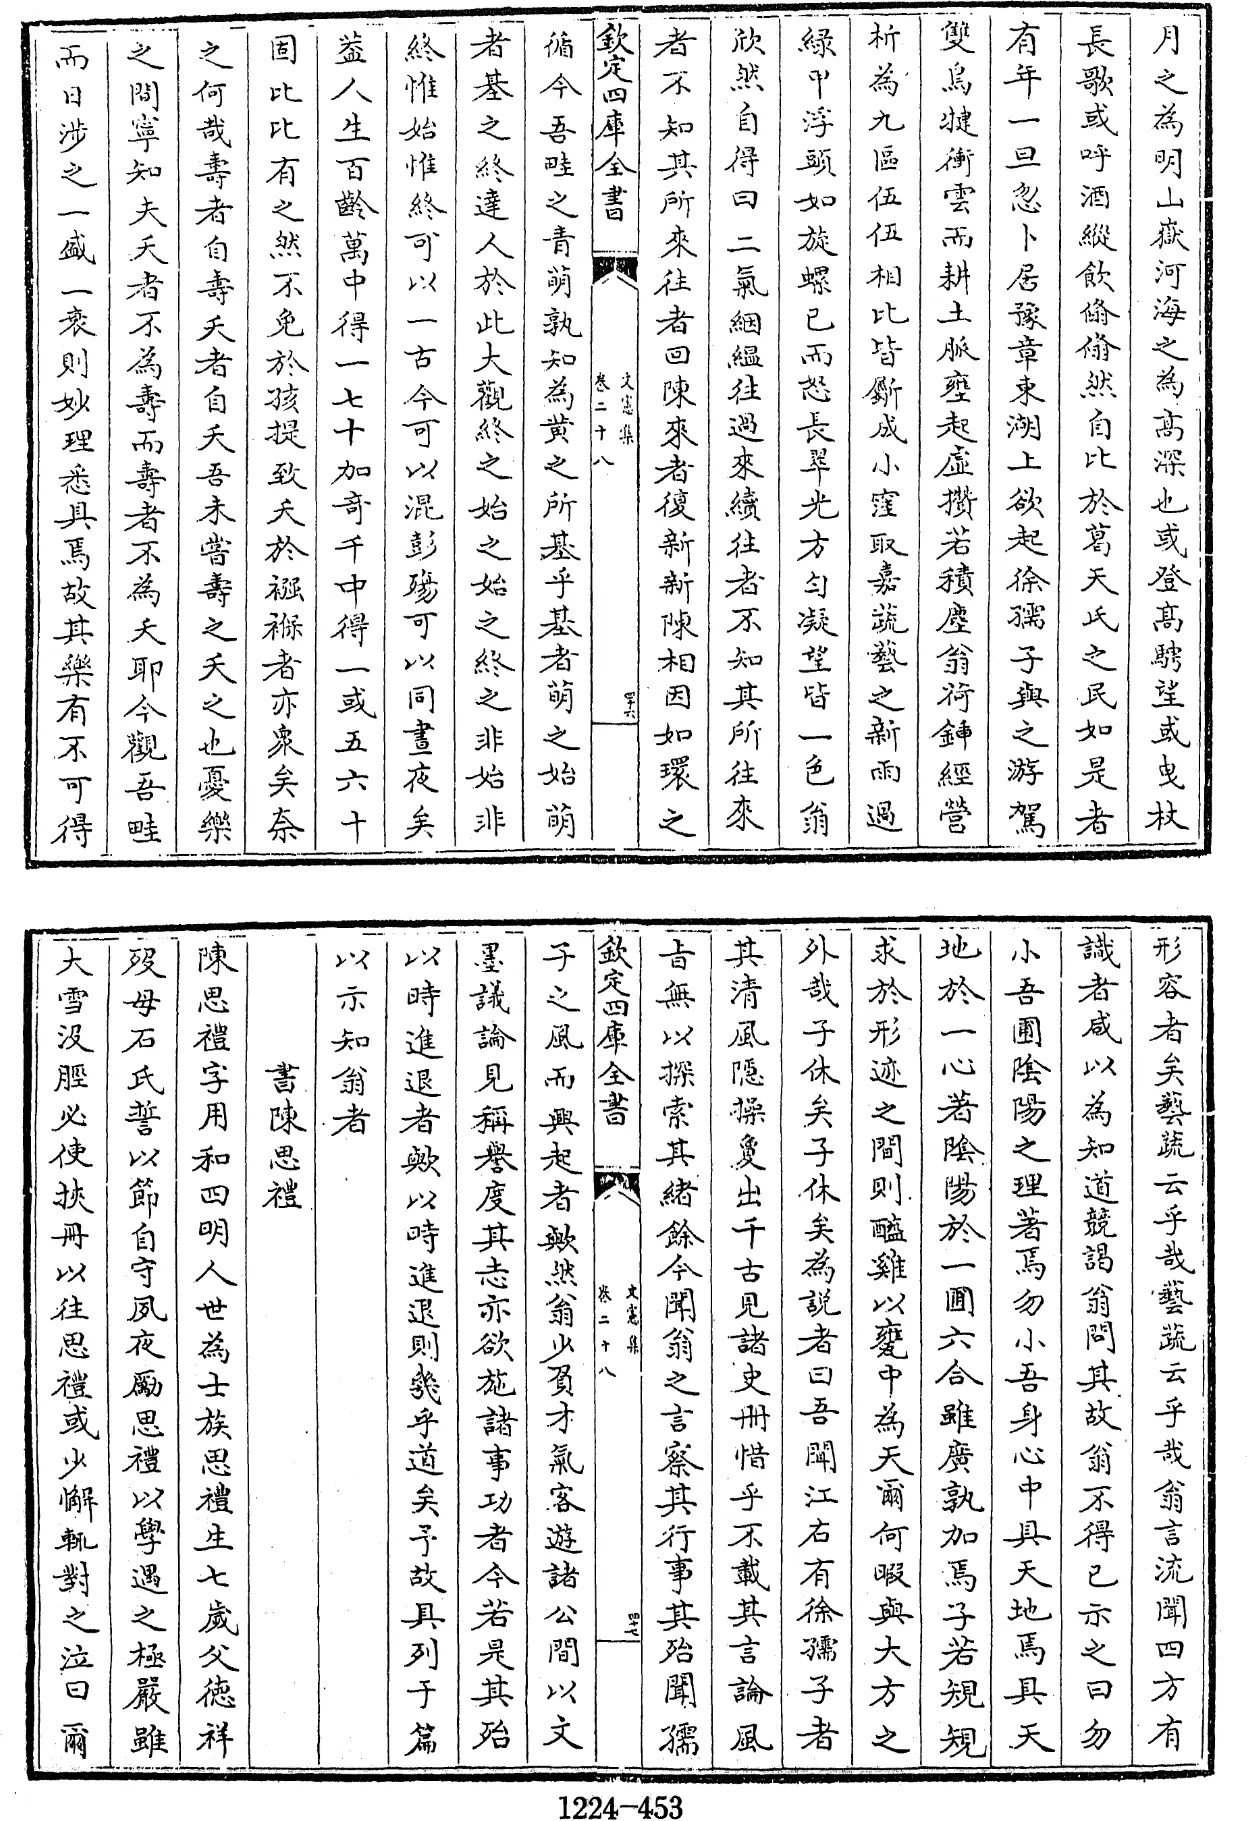 月之為明山嶽河海之為高深也或登高騁望或曳杖
長歌或呼酒縱飲翛翛然自比於葛天氏之民如是者
有年一旦忽卜居豫章東湖上欲起徐孺子與之游駕
雙烏犍衝雲而耕土脈壅起虛攢若積塵翁荷鍤經營
析為九區伍伍相比皆斸成小窪取嘉蔬藝之新雨過
緑甲浮頭如旋螺已而怒長翠光方勻凝望皆一色翁
欣然自得曰二氣絪縕往過來續往者不知其所往來
者不知其所來往者回陳來者復新新陳相因如環之
欽定四庫全書
文憲集
卷二十八
四十六
循今吾畦之青萌孰知為黄之所基乎基者萌之始萌
者基之終達人於此大觀終之始之始之終之非始非
終惟始惟終可以一古今可以混彭殤可以同晝夜矣
葢人生百齡萬中得一七十加奇千中得一或五六十
固比比有之然不免於孩提致夭於襁褓者亦衆矣奈
之何哉壽者自壽夭者自夭吾未嘗壽之夭之也憂樂
之間寧知夫夭者不為壽而壽者不為夭耶今觀吾畦
而日涉之一盛一衰則妙理悉具焉故其樂有不可得
形容者矣藝蔬云乎哉藝蔬云乎哉翁言流聞四方有
識者咸以為知道競謁翁問其故翁不得已示之曰勿
小吾圃隂陽之理著焉勿小吾身心中具天地焉具天
地於一心著隂陽於一圃六合雖廣孰加焉子若規規
求於形迹之間則醯雞以甕中為天爾何暇與大方之
外哉子休矣子休矣為説者曰吾聞江右有徐孺子者
其清風隱操敻出千古見諸史册惜乎不載其言論風
旨無以探索其緒餘今聞翁之言察其行事其殆聞孺
欽定四庫全書
文憲集
卷二十八
四十七
子之風而興起者歟然翁少負才氣客遊諸公間以文
墨議論見稱譽度其志亦欲施諸事功者今若是其殆
以時進退者歟以時進退則幾乎道矣予故具列于篇
以示知翁者
書陳思禮
陳思禮字用和四明人世為士族思禮生七歲父德祥
歿母石氏誓以節自守夙夜勵思禮以學遇之極嚴雖
大雪没脛必使挾冊以往思禮或少懈輒對之泣曰爾
1224-453